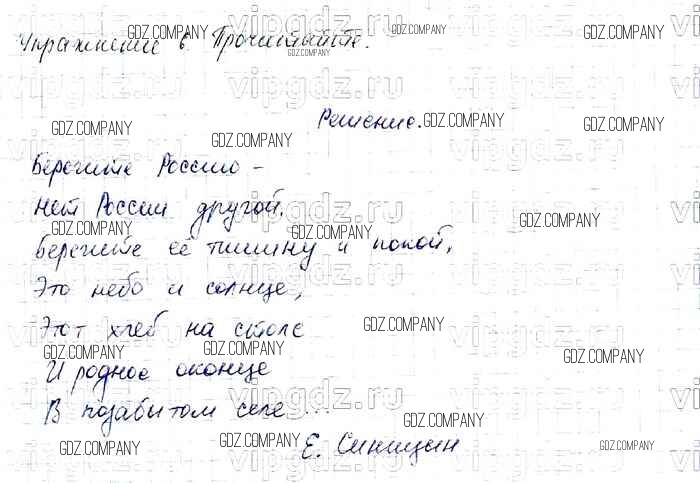 Упражнение 6. Прочитайте.
Решение.
Берегите Россию –
Нет России другой.
Берегите её тишину и покой,
Это небо и солнце,
Этот хлеб на столе
И родное оконце
В позабытом селе...
Е. Синицын